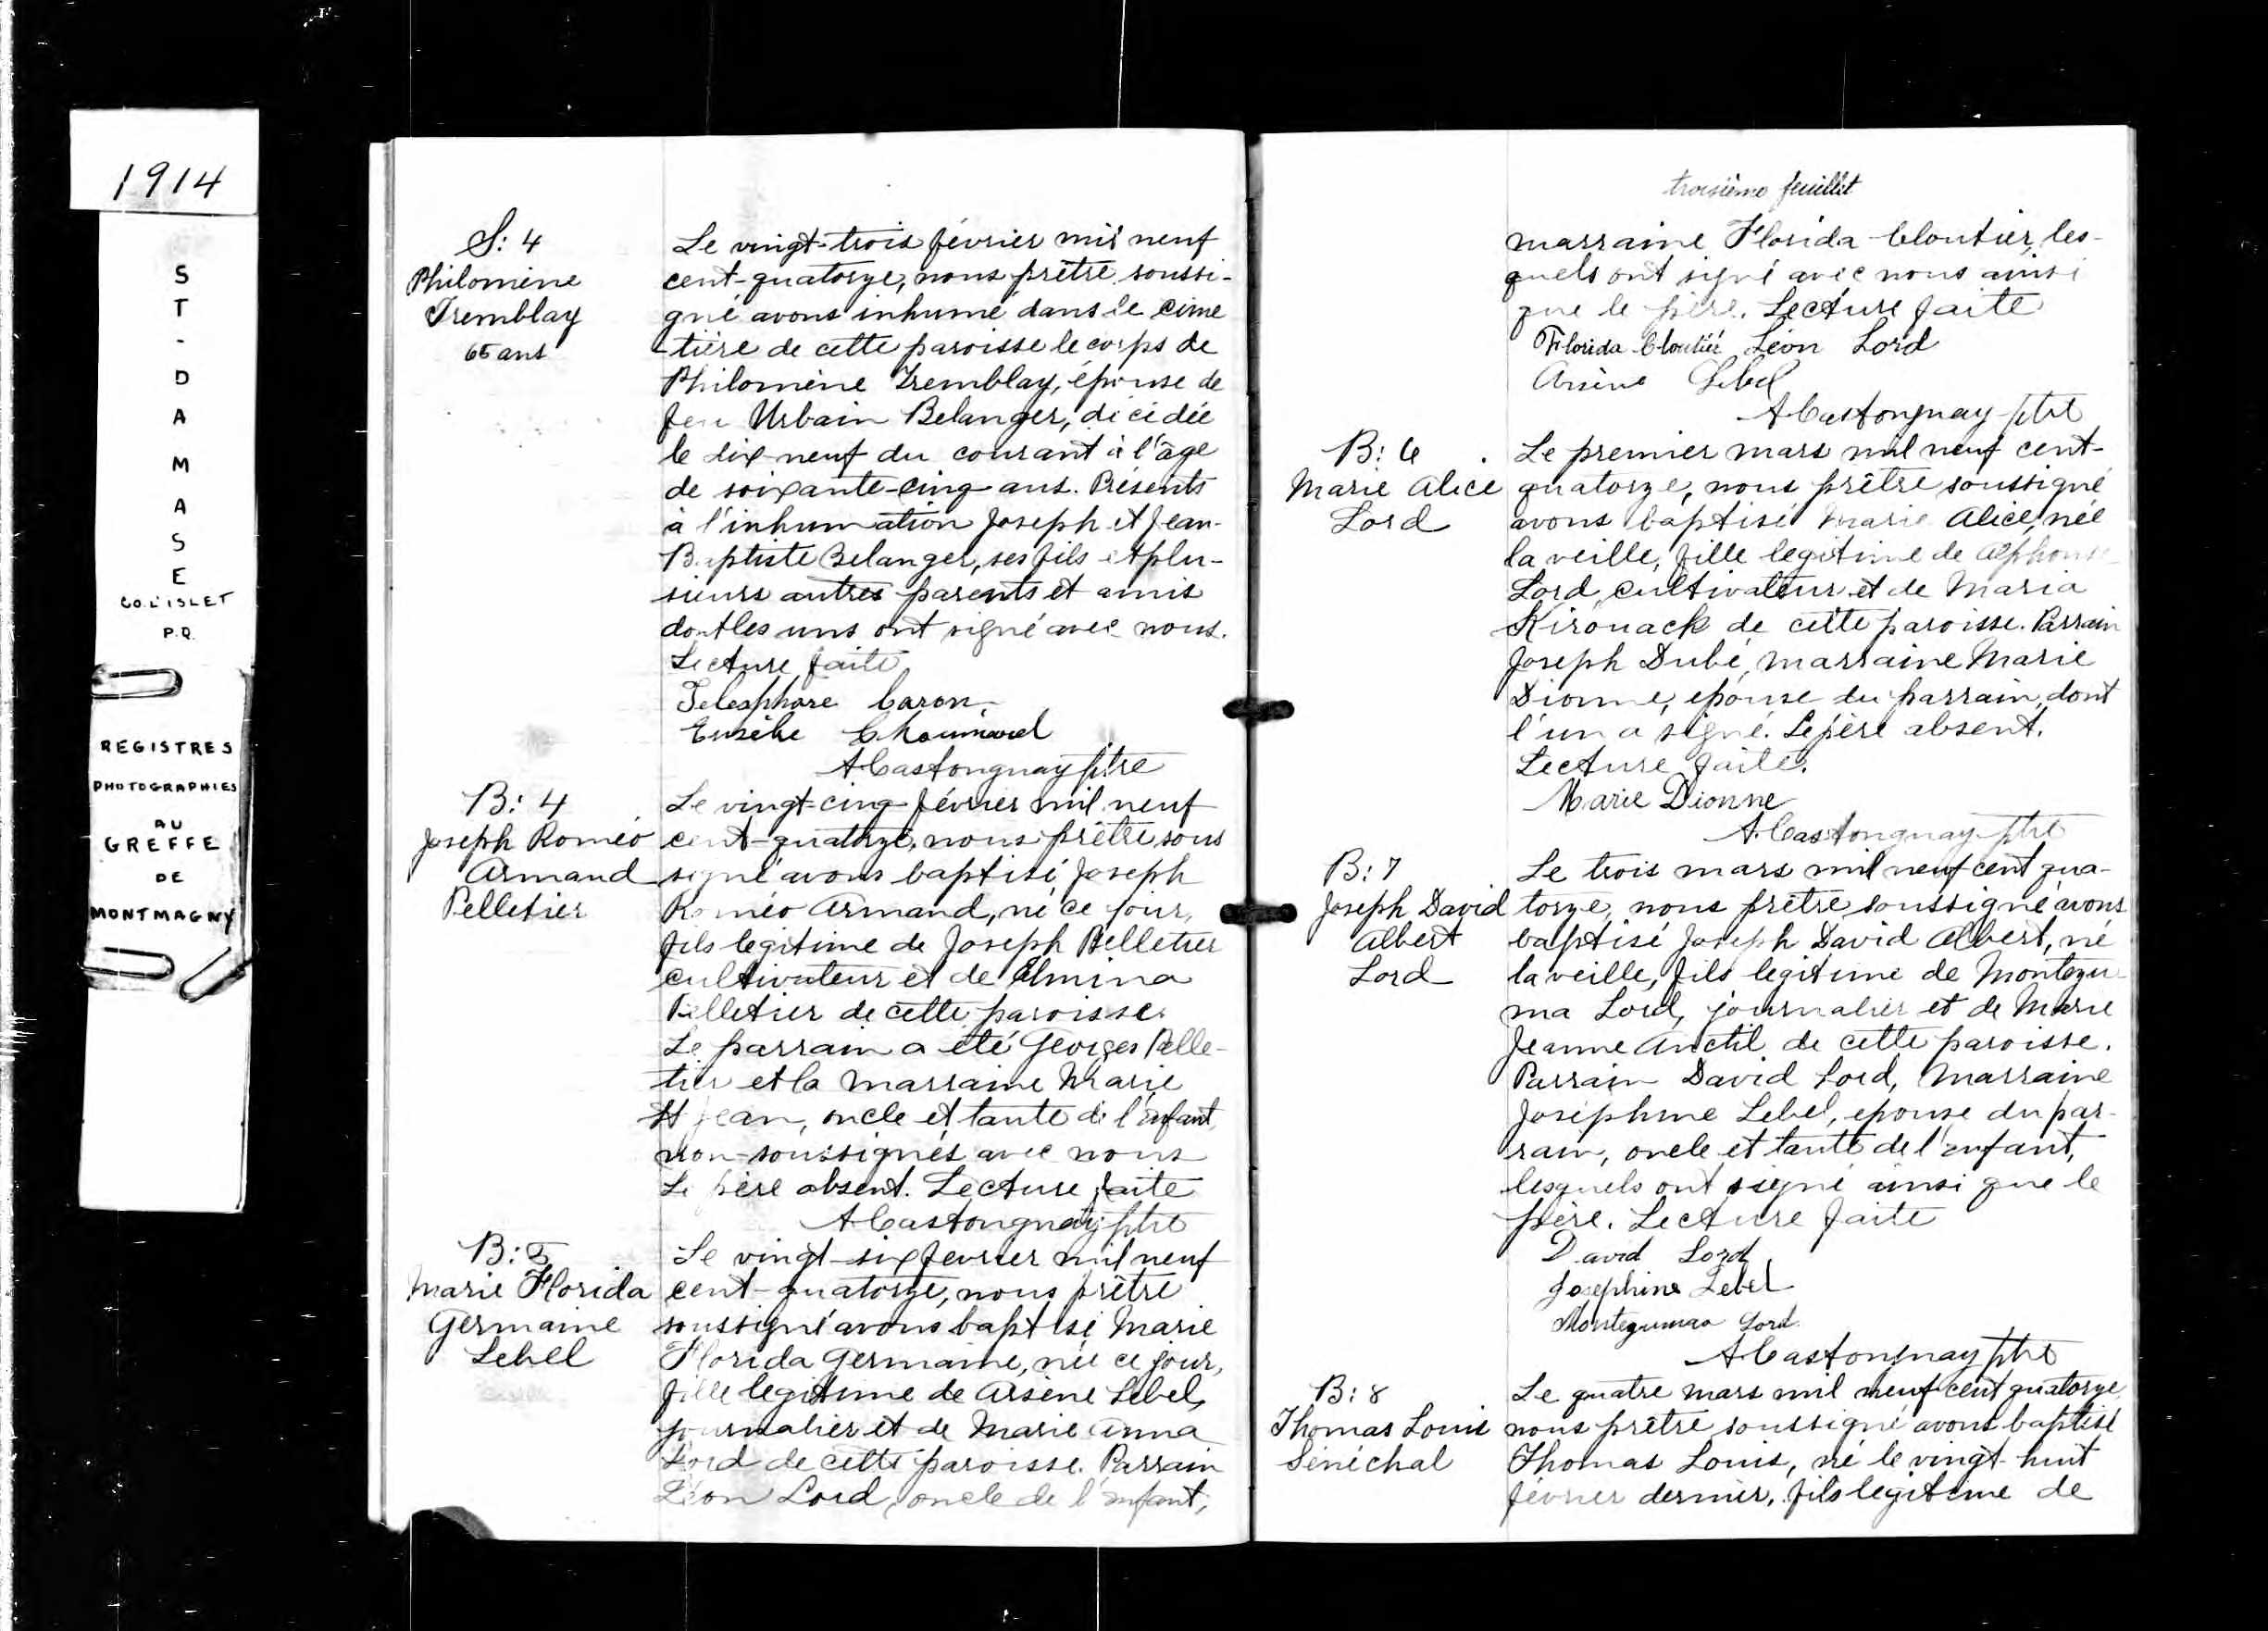 1914
ST-DAMASE
CO. L'ISLET
P.Q.
REGISTRES
PHOTOGRAPHIES
AU
GREFFE
DE
MONTMAGNY
S: 4
Philomène
Tremblay
65 ans
Le vingt-trois février mil neuf
cent-quatorze, nous prêtre soussi-
gné avons inhumé dans le cime
-tière de cette paroisse le corps de
Philomène Tremblay, épouse de
feu Urbain Belanger, décédée
le dix-neuf du courant à l'âge
de soixante-cinq ans. Présents
à l'inhumation Joseph et Jean-
Baptiste Belanger, ses fils et plu-
sieurs autres parents et amis
dont les uns ont signé avec nous.
Lecture faite,
Telesphore Caron
Eusèbe Chouinard
A Castonguay ptre
B: 4
Joseph Roméo
Armand
Pelletier
Le vingt-cinq février mil neuf
cent-quatorze, nous prêtre sous
signé avons baptisé Joseph
Roméo Armand, né ce jour,
fils legitime de Joseph Pelletier
cultivateur et de Elmina
Pelletier de cette paroisse.
Le parrain a été Georges Pelle-
tier et la marraine Marie
St Jean, oncle et tante de l'enfant,
non-soussignés avec nous
Le père absent. Lecture faite
A Castonguay ptre
B: 5
Marie Florida
Germaine
Lebel
Le vingt-six fevrier mil neuf
cent-quatorze, nous prêtre
soussigné avons baptisé Marie
Florida Germaine, née ce jour,
fille legitime de Arsène Lebel,
journalier et de Marie Anna
Lord de cette paroisse. Parrain
Léon Lord, oncle de l'enfant,
troisième feuillet
marraine Florida Cloutier, les-
quels ont signé avec nous ainsi
que le père. Lecture faite
Florida Cloutier Léon Lord
Arsène Lebel
A Castonguay ptre
B: 6
Marie Alice
Lord
Le premier mars mil neuf cent-
quatorze, nous prêtre soussigné
avons baptisé Marie Alice, née
la veille, fille legitime de Alphonse
Lord, cultivateur et de Maria
Kirouack de cette paroisse. Parrain
Joseph Dubé, marraine Marie
Dionne, epouse du parrain, dont
l'un a signé. Le père absent.
Lecture faite.
Marie Dionne
A. Castonguay ptre
B: 7
Joseph David
Albert
Lord
Le trois mars mil neuf cent qua-
torze, nous prêtre soussigné avons
baptisé Joseph David Albert, né
la veille, fils legitime de Montezu-
ma Lord, journalier et de Marie
Jeanne Anctil de cette paroisse.
Parrain David Lord, marraine
Joséphine Lebel, epouse du par-
rain, oncle et tante de l'enfant,
lesquels ont signé ainsi que le
père. Lecture faite
David Lord
Josephine Lebel
Montezumaa Lord
A Castonguay ptre
B: 8
Thomas Louis
Sénéchal
Le quatre mars mil neuf cent quatorze
nous prêtre soussigné avons baptisé
Thomas Louis, né le vingt-huit
février dernier, fils legitime de